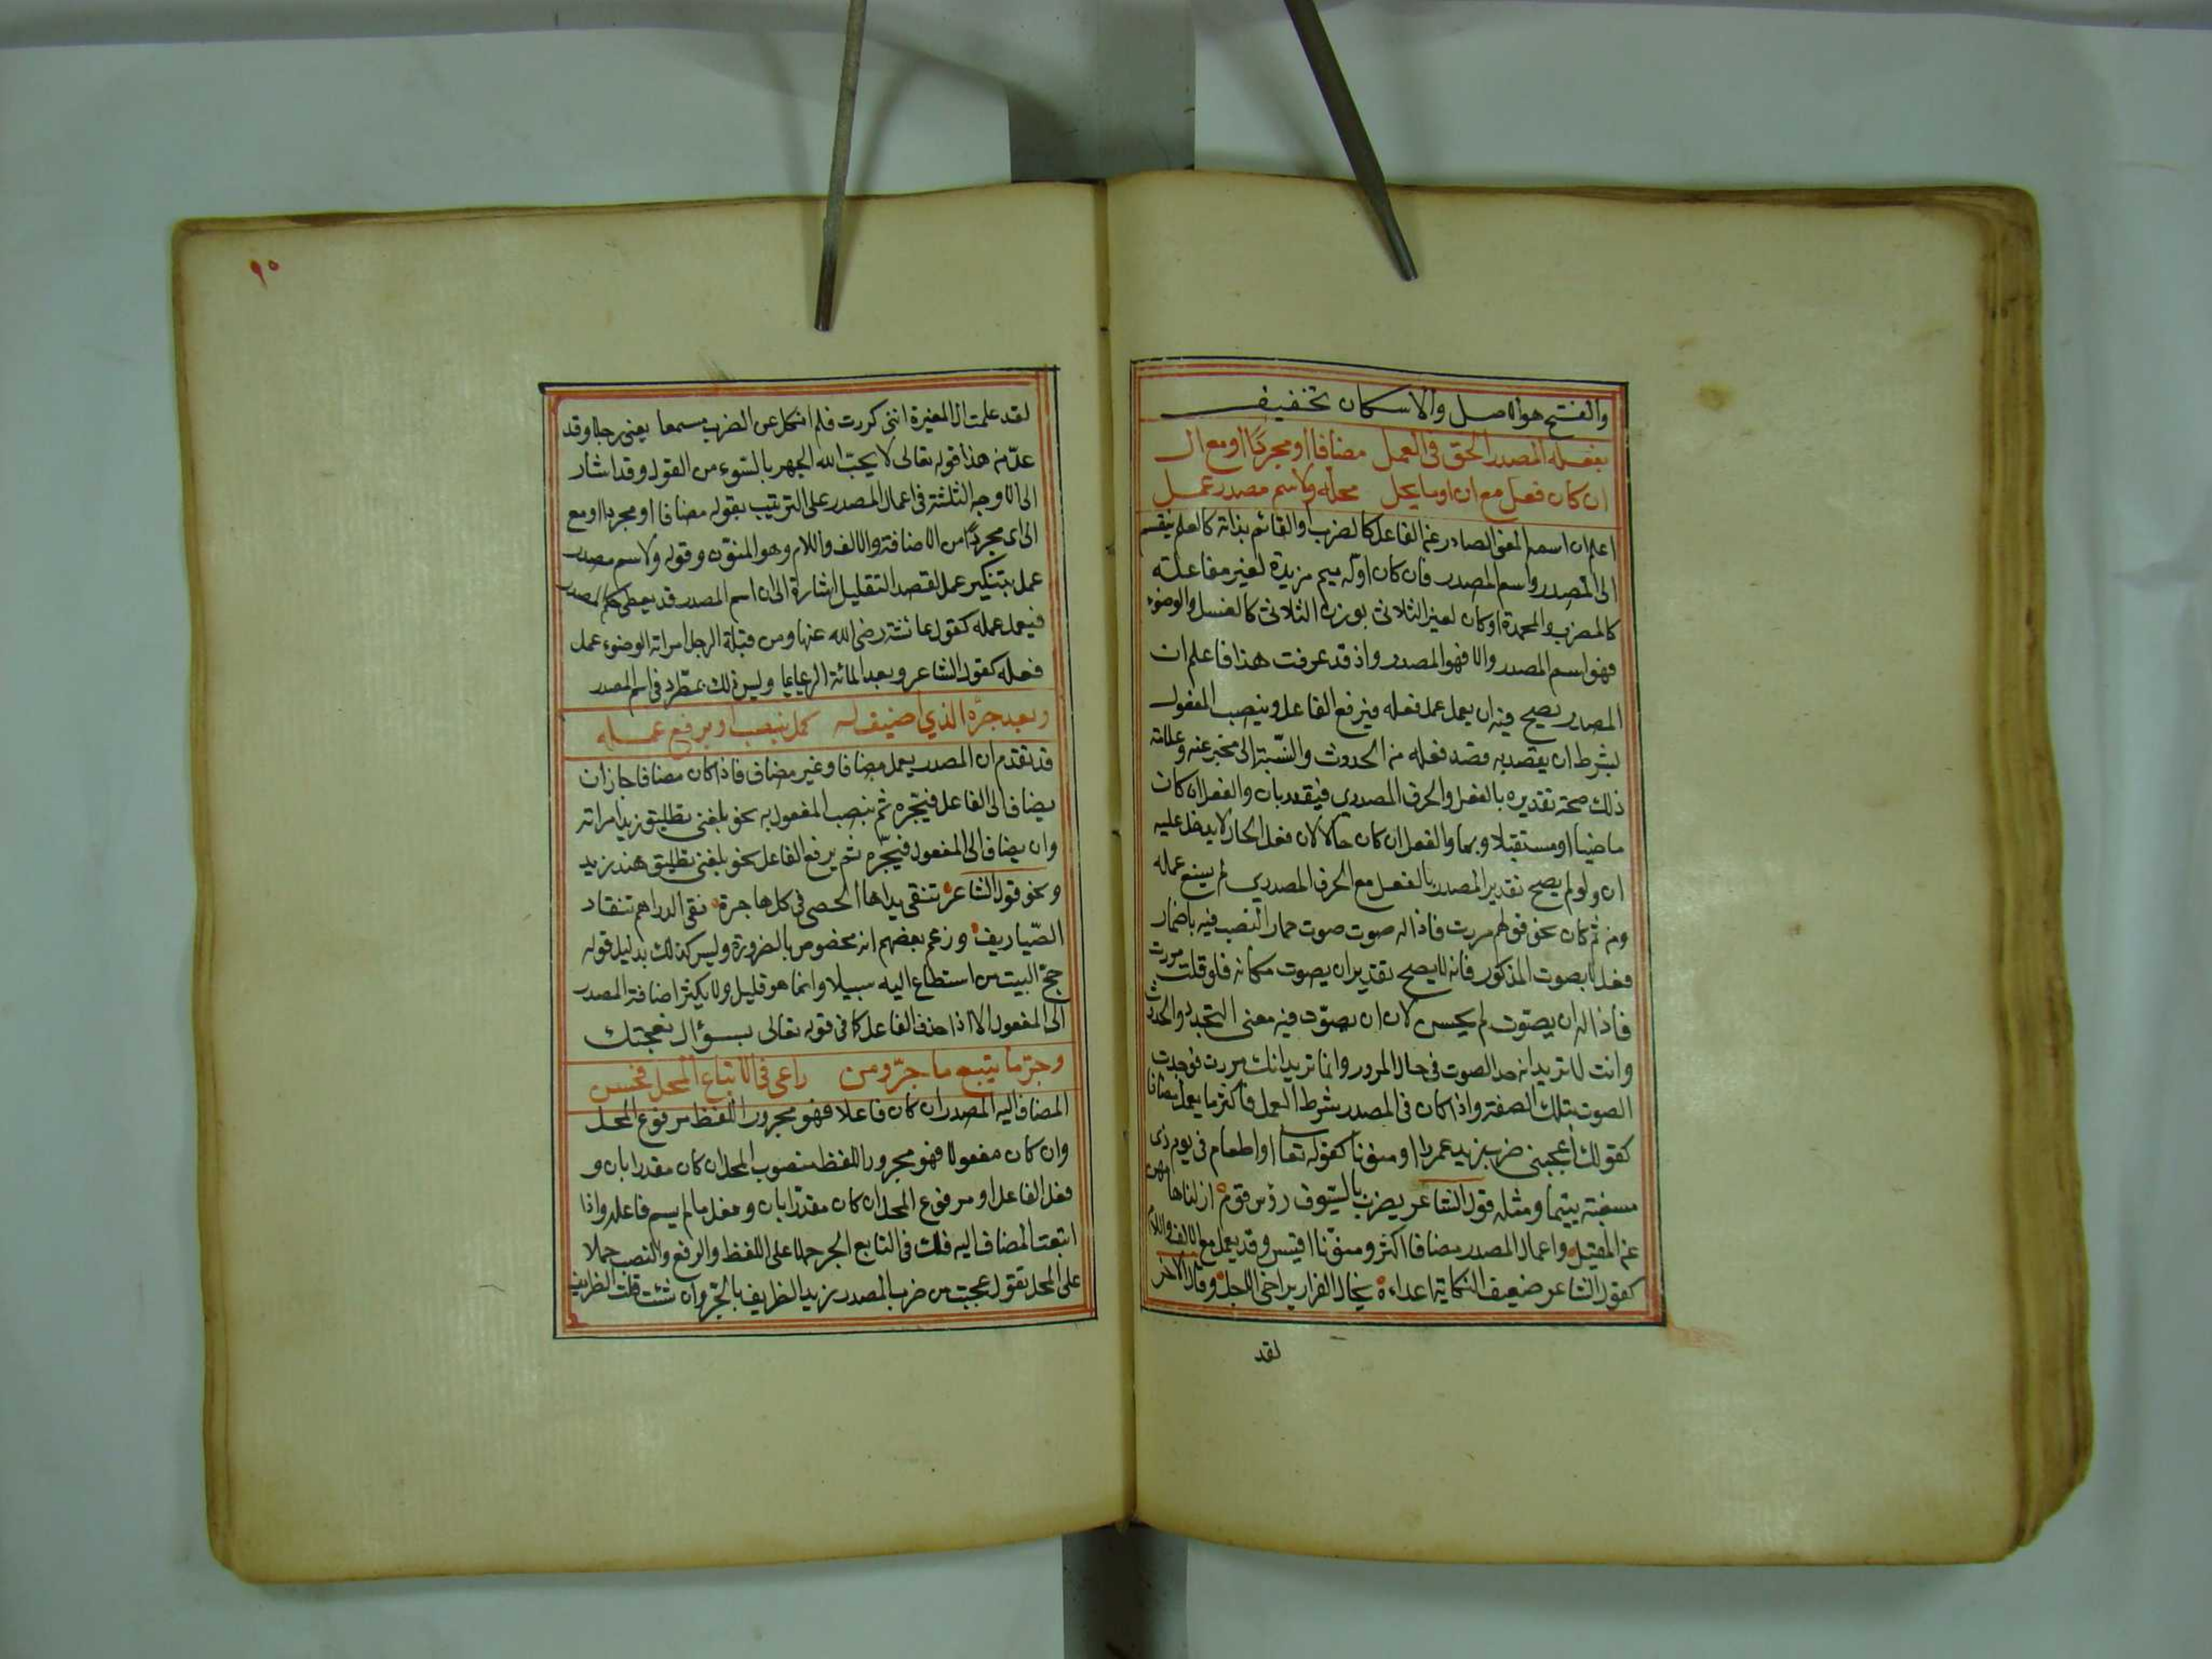 والفتح هو الاصل والاسكان تخفيف
بفعله المصدر الحق في العمل مضافا او مجردا او مع ال
ان كان فعل مع ان او ما يحل محله ولاسم مصدر عمل
اعلم ان اسم المعنى الصادر عن الفاعل كالضرب او القائم بذاته كالعلم ينقسم
الى المصدر واسم المصدر فان كان اوله ميم مزيدة لغير مفاعلة
كالمضرب والمحمدة او كان لغير الثلاثي بوزن الثلاثي كالغسل والوضوء
فهو اسم المصدر والا فهو المصدر واذ قد عرفت هذا فاعلم ان
المصدر يصح فيه ان يعمل عمل فعله فيرفع الفاعل وينصب المفعول
بشرط ان يقصد به قصد فعله من الحدوث والنسبة الى مخبر عنه وعلامة
ذلك صحة تقديره بالفعل والحرف المصدري فيقدر بان والفعل ان كان
ماضيا او مستقبلا وبما والفعل ان كان حالا لان فعل الحال لا يدخل عليه
ان ولو لم يصح تقدير المصدر بالفعل مع الحرف المصدري لم يسغ عمله
ومن ثم كان نحو قولهم مررت فاذا له صوت صوت حمار النصب فيه باضمار
فعل لا بصوت المذكور فانه لا يصح تقدير ان يصوت مكانه فلو قلت مررت
فاذا له ان يصوت لم يحسن لان ان يصوت فيه معنى التجدد والحدوث
وانت لا تريد انه جدد الصوت في حال المرور وانما تريد انك مررت فوجدت
الصوت بتلك الصفة واذا كان في المصدر شرط العمل فاكثر ما يعمل مضافا
كقولك اعجبني ضرب زيد عمرا او منونا كقوله تعا او اطعام في يوم ذى
مسغبة يتيما ومثله قول الشاعر يضرب بالسيوف رؤس قوم ازلنا هامهن
عن المقيل واعمال المصدر مضافا اكثر ومنونا اقيس وقد يعمل مع الالف واللام
كقول الشاعر ضعيف النكاية اعداءه يخال الفرار يراخى الاجل وقال الاخر
لقد
٩٠
لقد علمت الى المغيرة اننى كررت فلم انكل عن الضرب مسمعا يعنى رجلا وقد
عد من هذا قوله تعالى لا يحب الله الجهر بالسوء من القول وقد اشار
الى الاوجه الثلثة في اعمال المصدر على الترتيب بقوله مضافا او مجردا او مع
ال اى مجردا من الاضافة والالف واللام وهو المنون وقوله ولاسم مصدر
عمل بتنكير عمل لقصد التقليل اشارة الى ان اسم المصدر قد يعطى حكم المصدر
فيعمل عمله كقول عائشة رضى الله عنها ومن قبلة الرجل امراته الوضوء عمل
فعله كقول الشاعر وبعد المائة الرعايا وليس ذلك بمطرد في اسم المصدر
وبعد جره الذي اضيف له كمل بنصب او برفع عمله
قد تقدم ان المصدر يعمل مضافا وغير مضاف فاذا كان مضافا جاز ان
يضاف الى الفاعل فيجره ثم ينصب المفعول به نحو بلغنى تطليق زيد امراته
وان يضاف الى المفعول فيجره ثم يرفع الفاعل نحو بلغنى تطليق هند زيد
ونحو قول الشاعر تنفى يداها الحصى في كل هاجرة نقى الدراهم تنقاد
الصياريف وزعم بعضهم انه مخصوص بالضرورة وليس كذلك بدليل قوله
حج البيت من استطاع اليه سبيلا وانما هو قليل ولا يكثر اضافة المصدر
الى المفعول الا اذا حذف الفاعل كما في قوله تعالى بسؤال نعجتك
وجر ما يتبع ما جر ومن راعى في الاتباع المحل فحسن
المضاف اليه المصدر ان كان فاعلا فهو مجرور اللفظ مرفوع المحل
وان كان مفعولا فهو مجرور اللفظ منصوب المحل ان كان مقدرا بان و
فعل الفاعل او مرفوع المحل ان كان مقدرا بان وفعل ما لم يسم فاعله واذا
اتبعت المضاف اليه فلك في التابع الجر حملا على اللفظ والرفع والنصب حملا
على المحل تقول عجبت من ضرب المصدر زيد الظريف بالجر وان شئت قلت الظريف